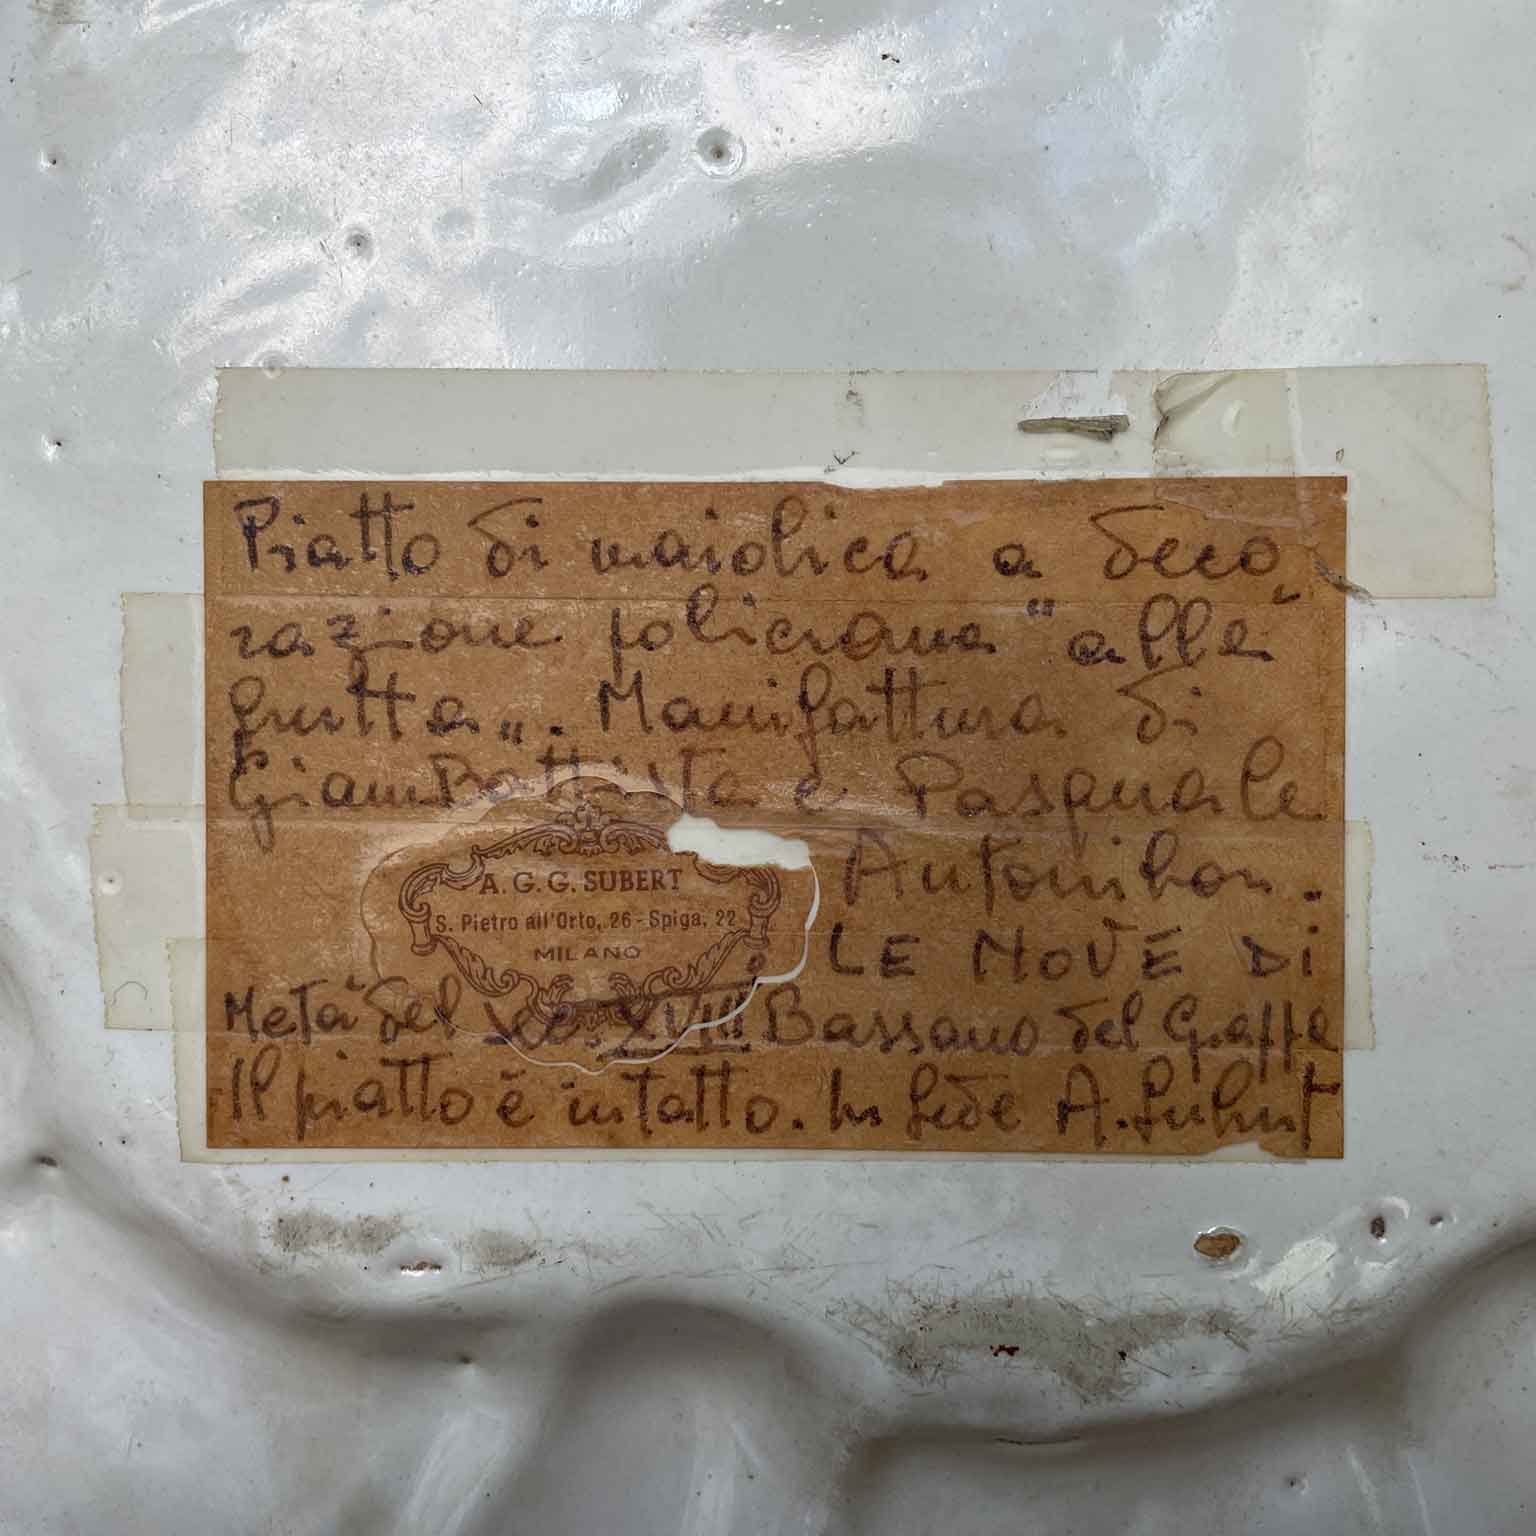 Piatto di maiolica a deco
razione policroma "alla"
frutta„. Manifattura di
GiamBattista e Pasquale
Antonibon.
A. G. G. SUBERT
S. Pietro all'Orto, 26 - Spiga, 22
MILANO
LE NOVE DI
Metà del sec. XVIII Bassano del Grappa
Il piatto è intatto. In fede A. Subert